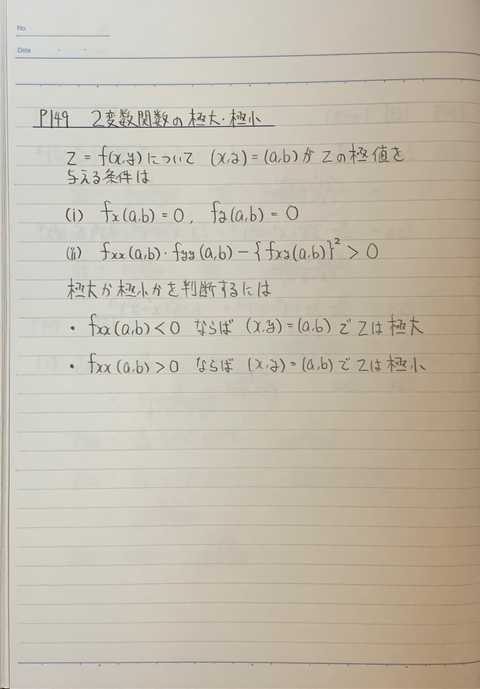 No.
Date
P149 2変数関数の極大・極小
Z = f(x,y)について (x,y)=(a,b)がZの極値を
与える条件は
(i) fx(a,b)=0, fy(a,b)=0
(ii) fxx(a,b)・fyy(a,b)-{fxy(a,b)}² > 0
極大か極小かを判断するには
・fxx(a,b)<0 ならば (x,y)=(a,b)でZは極大
・fxx(a,b)>0 ならば (x,y)=(a,b)でZは極小